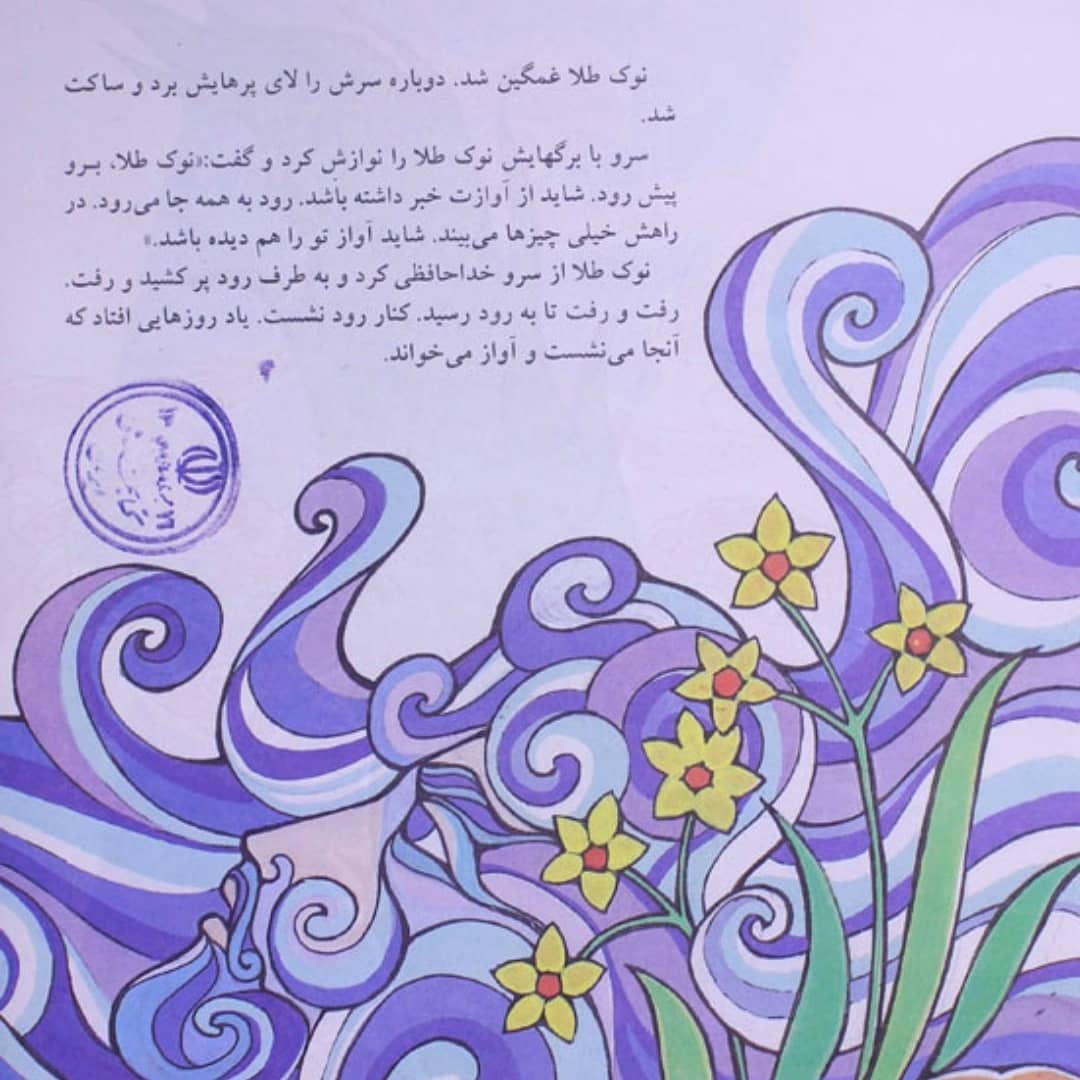 نوک طلا غمگین شد. دوباره سرش را لای پرهایش برد و ساکت
شد.
سرو با برگهایش نوک طلا را نوازش کرد و گفت:«نوک طلا، برو
پیش رود. شاید از آوازت خبر داشته باشد. رود به همه جا می‌رود. در
راهش خیلی چیزها می‌بیند. شاید آواز تو را هم دیده باشد.»
نوک طلا از سرو خداحافظی کرد و به طرف رود پر کشید و رفت.
رفت و رفت تا به رود رسید. کنار رود نشست. یاد روزهایی افتاد که
آنجا می‌نشست و آواز می‌خواند.